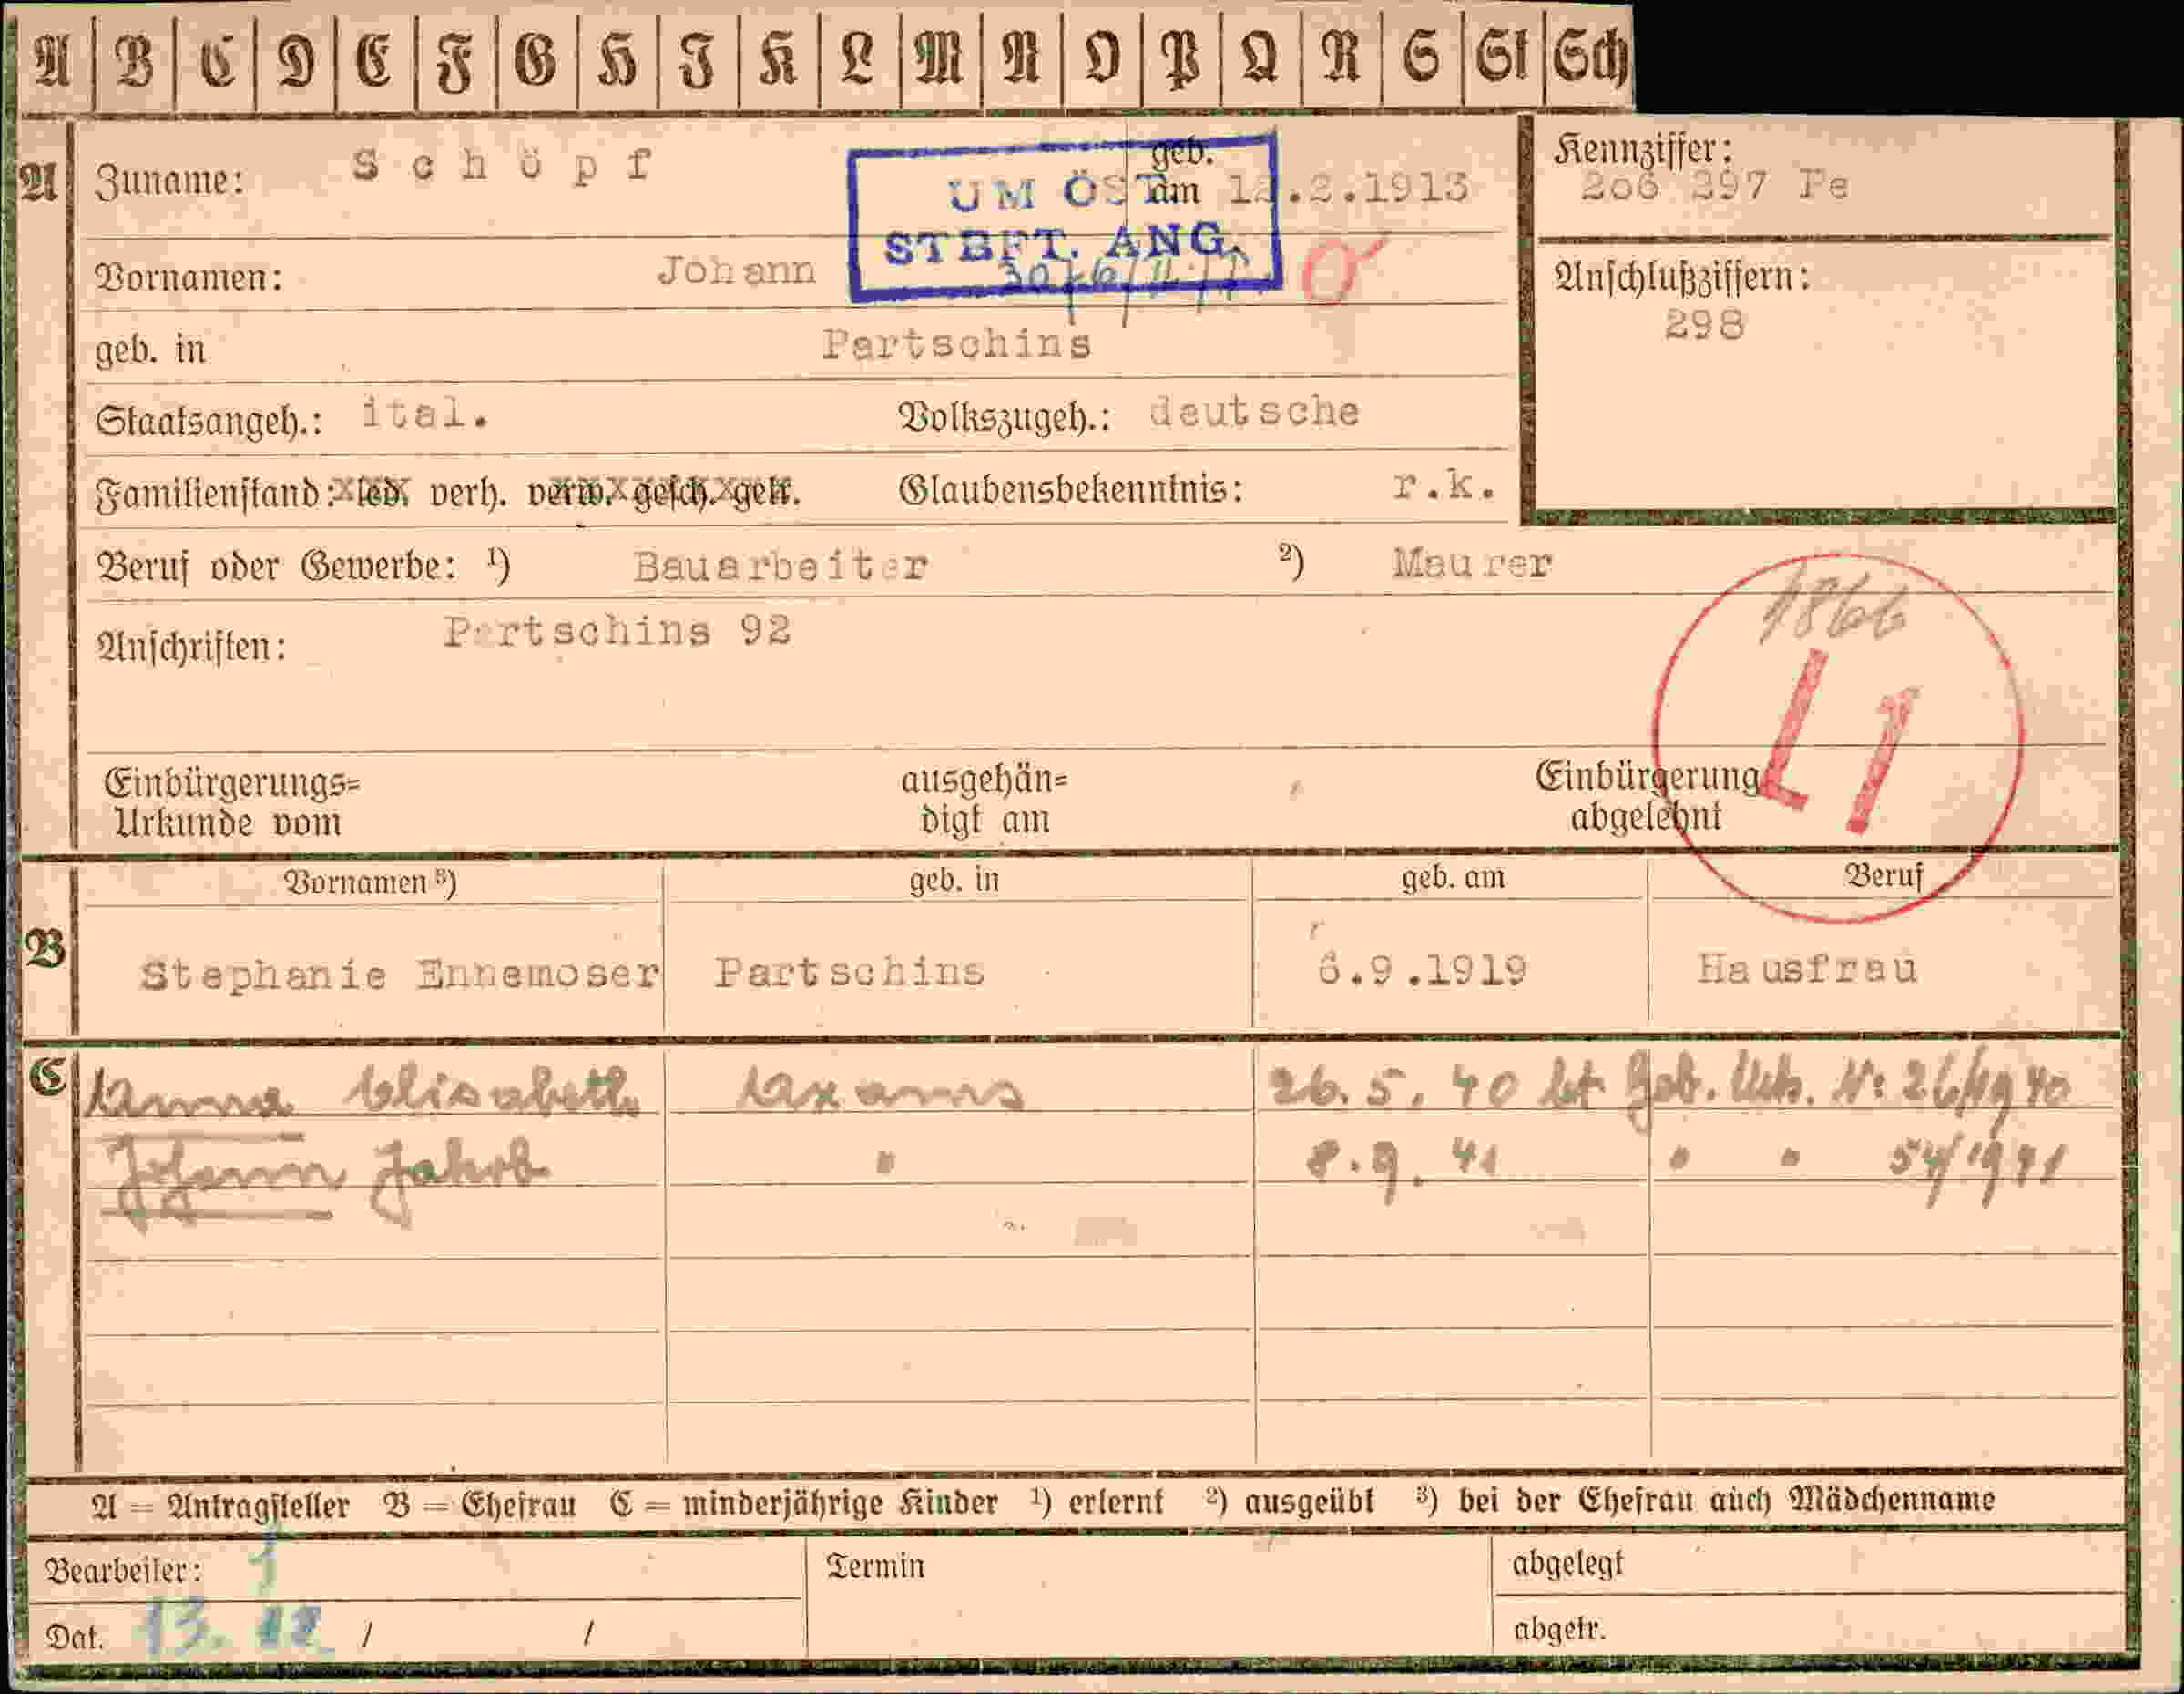 A B C D E F G H I K L M N O P Q R S St Sch
A Zuname: Schöpf geb. am .2.1913
UM ÖST.
STBFT. ANG.
Kennziffer:
206 297 Fe
Vornamen: Johann
Anschlußziffern:
298
geb. in Partschins
Staatsangeh.: ital. Volkszugeh.: deutsche
Familienstand: led. verh. verw. gesch. getr. Glaubensbekenntnis: r.k.
Beruf oder Gewerbe: ¹) Bauarbeiter ²) Maurer
Anschriften: Partschins 92
1866
L1
Einbürgerungs= Urkunde vom ausgehän= digt am Einbürgerung abgelehnt
Vornamen ³) geb. in geb. am Beruf
B Stephanie Ennemoser Partschins 6.9.1919 Hausfrau
C Anna Elisabeth Axams 26. 5. 40 lt. Geb. Urk. Nr. 26/1940
Johann Jakob " 8. 9. 41 " " 54/1941
A = Antragsteller B = Ehefrau C = minderjährige Kinder ¹) erlernt ²) ausgeübt ³) bei der Ehefrau auch Mädchenname
Bearbeiter: Termin abgelegt
Dat. 13. 12 / / abgetr.